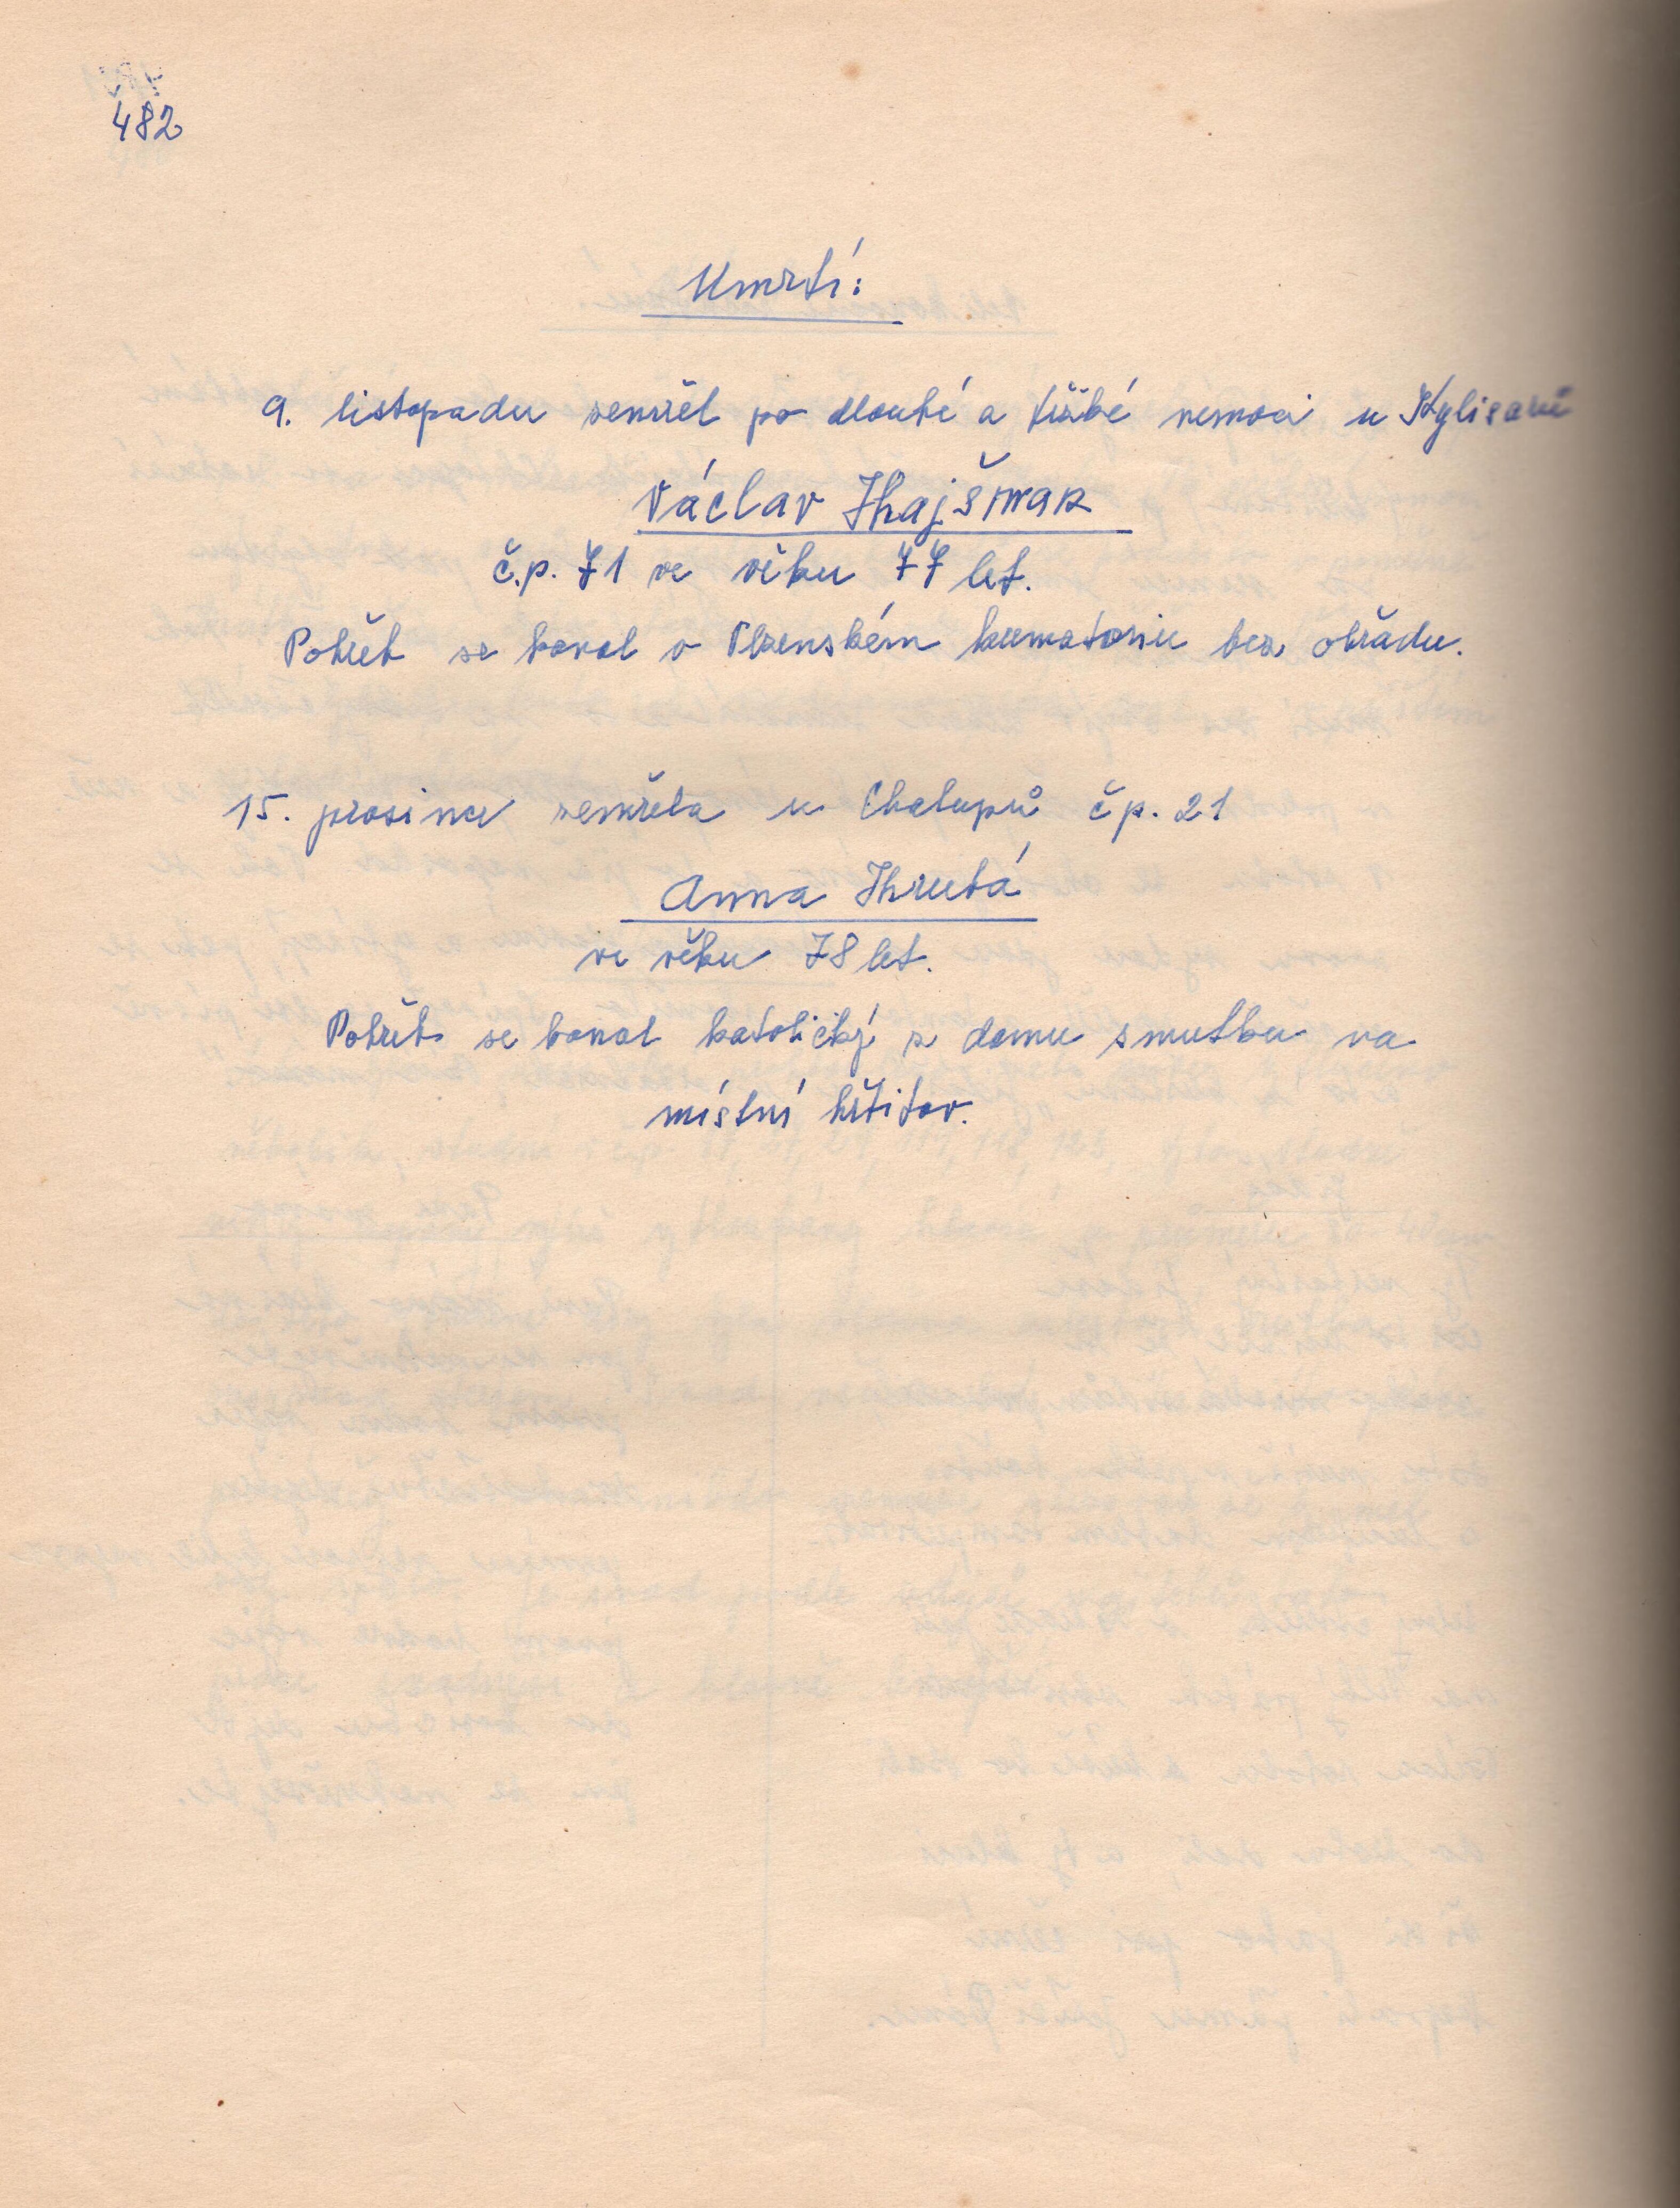 482
Úmrtí:
9. listopadu zemřel po dlouhé a těžké nemoci u
Václav Hajšman
č.p. 71 ve věku 77 let.
Pohřeb se konal v Plzenském krematoriu bez obřadu.
15. prosince zemřela u Chalupů čp. 21
Anna Hrubá
ve věku 78 let.
Pohřeb se konal katolický z domu smutku na
místní hřbitov.